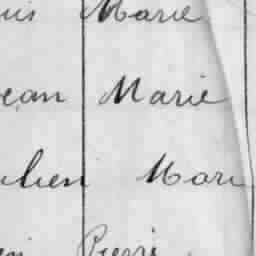 uis Marie
ean Marie
ulien Mari
Pierre